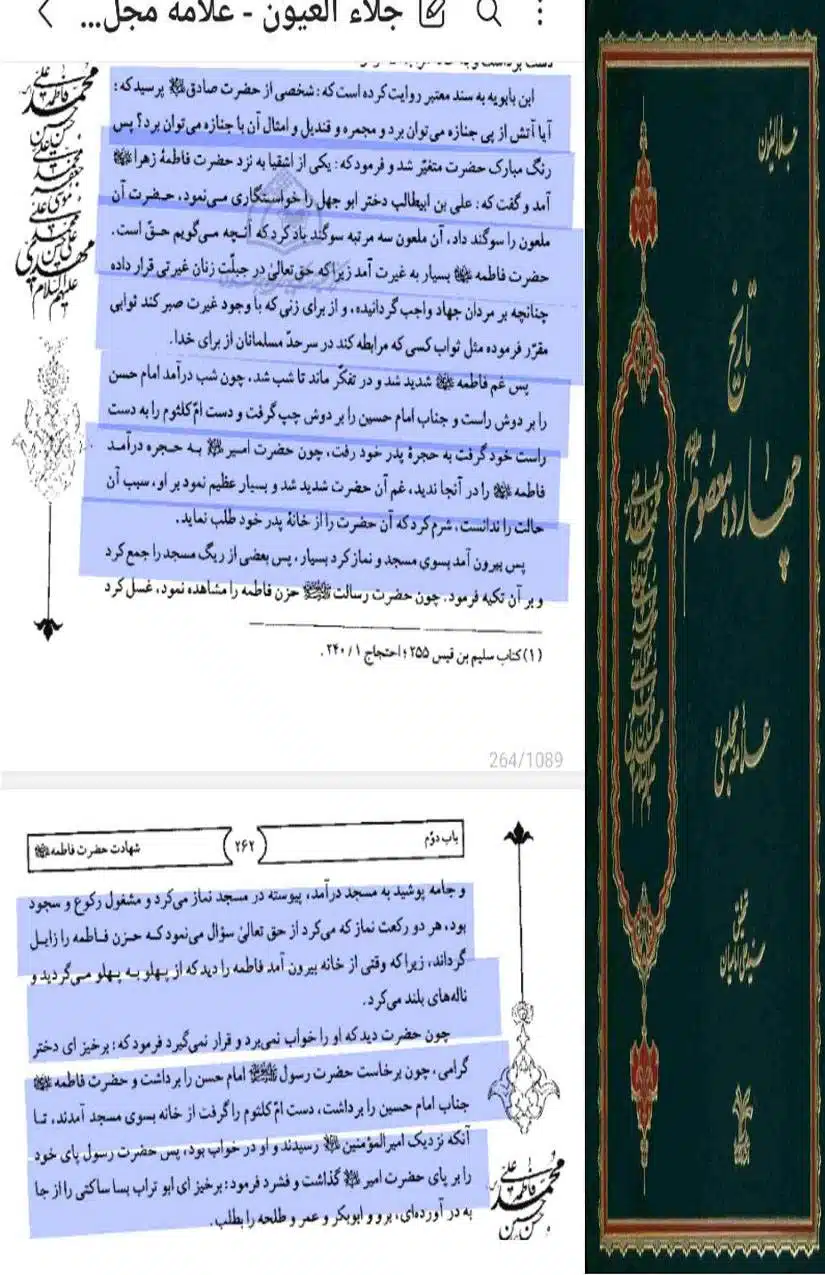 جلاء العیون - علامه مجل...
ابن بابویه به سند معتبر روایت کرده است که: شخصی از حضرت صادق ﷺ پرسید که:
آیا آتش از پی جنازه می‌توان برد و مجمره و قندیل و امثال آن با جنازه می‌توان برد؟ پس
رنگ مبارک حضرت متغیّر شد و فرمود که: یکی از اشقیا به نزد حضرت فاطمۀ زهرا
آمد و گفت که: علی بن ابیطالب دختر ابو جهل را خواستگاری می‌نمود، حضرت آن
ملعون را سوگند داد، آن ملعون سه مرتبه سوگند یاد کرد که آنچه می‌گویم حقّ است.
حضرت فاطمه بسیار به غیرت آمد زیرا که حق‌تعالیٰ در جبلّت زنان غیرتی قرار داده
چنانچه بر مردان جهاد واجب گردانیده، و از برای زنی که با وجود غیرت صبر کند ثوابی
مقرّر فرموده مثل ثواب کسی که مرابطه کند در سرحدّ مسلمانان از برای خدا.
پس غم فاطمه شدید شد و در تفکّر ماند تا شب شد، چون شب درآمد امام حسن
را بر دوش راست و جناب امام حسین را بر دوش چپ گرفت و دست امّ کلثوم را به دست
راست خود گرفت به حجرۀ پدر خود رفت، چون حضرت امیر به حجره درآمد
فاطمه را در آنجا ندید، غم آن حضرت شدید شد و بسیار عظیم نمود بر او، سبب آن
حالت را ندانست، شرم کرد که آن حضرت را از خانۀ پدر خود طلب نماید.
پس بیرون آمد بسوی مسجد و نماز کرد بسیار، پس بعضی از ریگ مسجد را جمع کرد
و بر آن تکیه فرمود. چون حضرت رسالت حزن فاطمه را مشاهده نمود، غسل کرد
(۱) کتاب سلیم بن قیس ۲۵۵ ؛ احتجاج ۱ / ۲۴۰ .
264/1089
باب دوّم
۲۶۲
شهادت حضرت فاطمه
و جامه پوشید به مسجد درآمد، پیوسته در مسجد نماز می‌کرد و مشغول رکوع و سجود
بود، هر دو رکعت نماز که می‌کرد از حق تعالیٰ سؤال می‌نمود که حزن فاطمه را زایل
گرداند، زیرا که وقتی از خانه بیرون آمد فاطمه را دید که از پهلو به پهلو می‌گردید و
ناله‌های بلند می‌کرد.
چون حضرت دید که او را خواب نمی‌برد و قرار نمی‌گیرد فرمود که: برخیز ای دختر
گرامی، چون برخاست حضرت رسول امام حسن را برداشت و حضرت فاطمه
جناب امام حسین را برداشت، دست امّ کلثوم را گرفت از خانه بسوی مسجد آمدند، تا
آنکه نزدیک امیرالمؤمنین رسیدند و او در خواب بود، پس حضرت رسول پای خود
را بر پای حضرت امیر گذاشت و فشرد فرمود: برخیز ای ابو تراب بسا ساکتی را از جا
به در آورده‌ای، برو و ابوبکر و عمر و طلحه را بطلب.
جلاء العیون
تاریخ
چهارده معصوم
علامه مجلسی
تحقیق